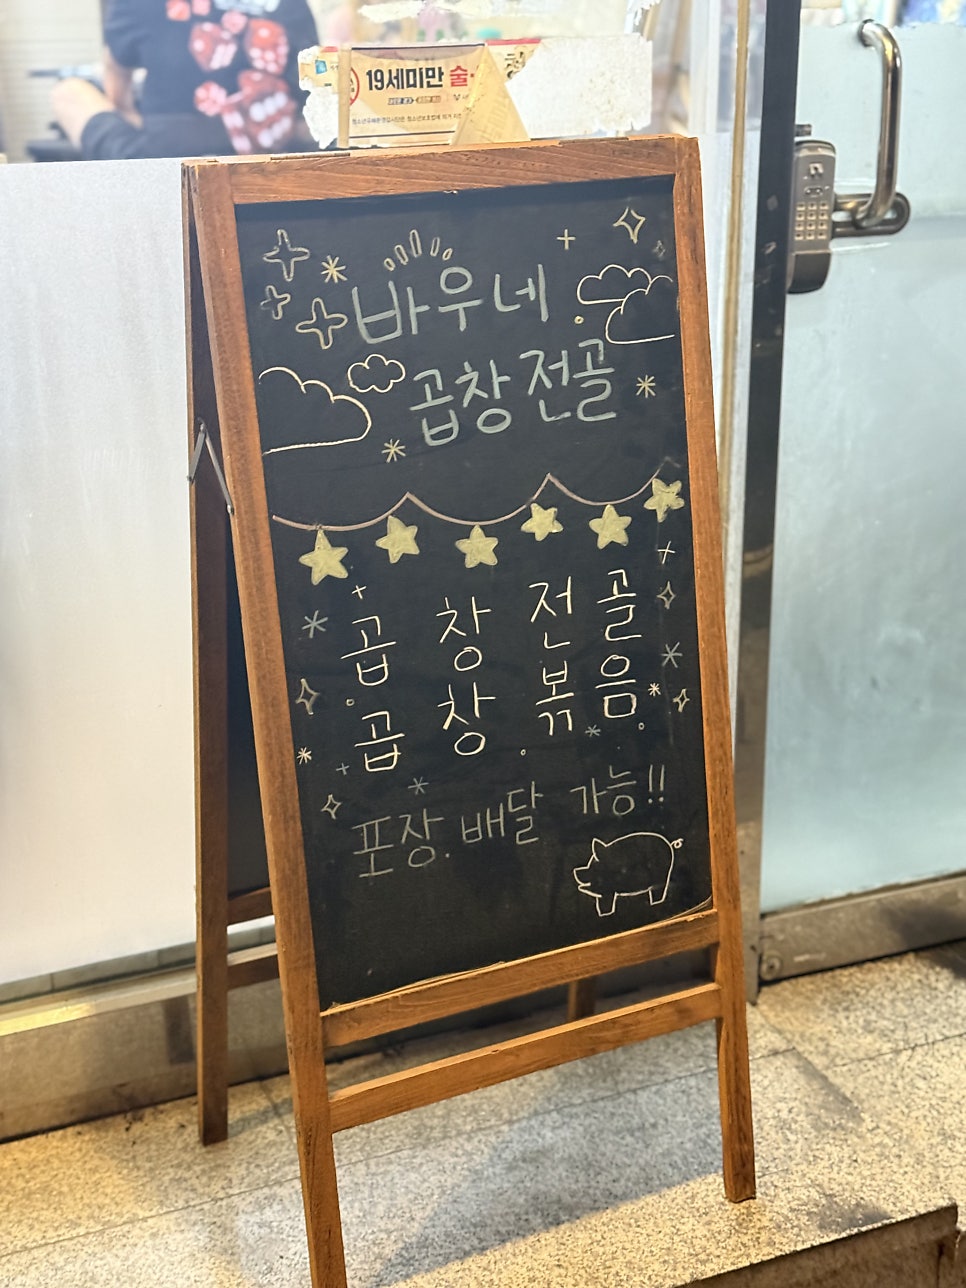 19세미만 술·
바우네
곱창전골
곱창전골
곱창볶음
포장.배달 가능!!